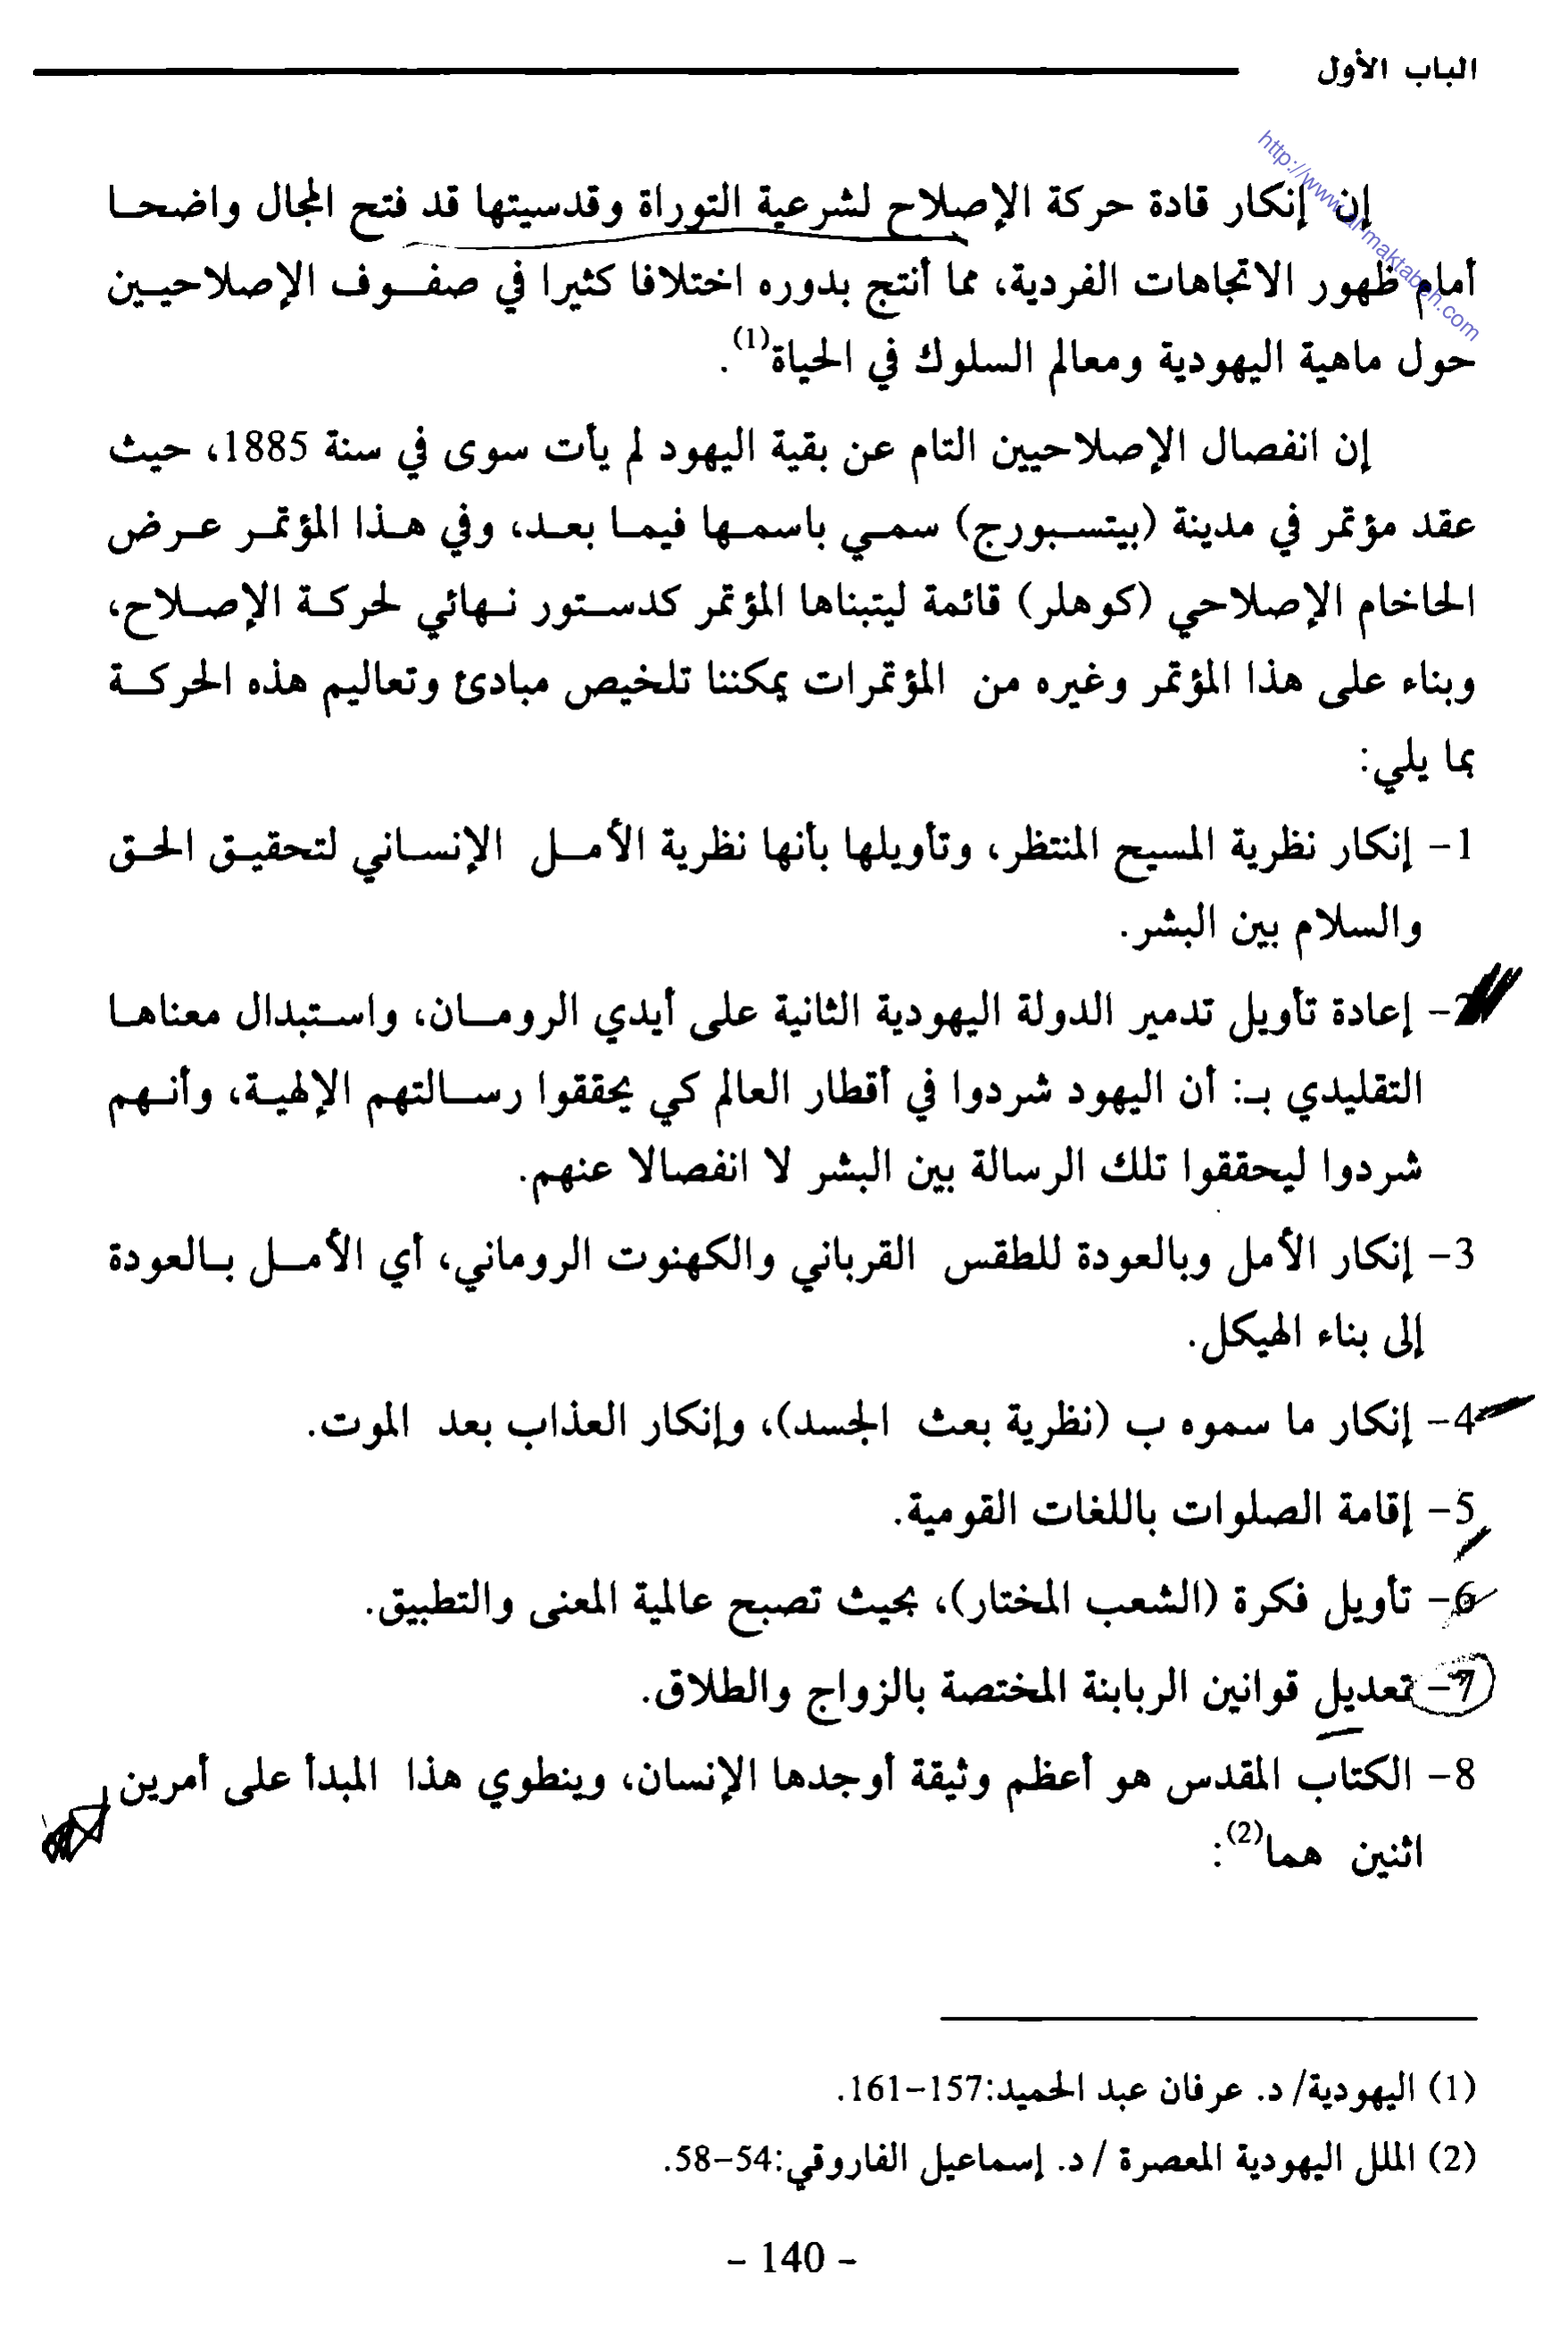 الباب الأول
http://www.al-maktabeh.com
إن إنكار قادة حركة الإصلاح لشرعية التوراة وقدسيتها قد فتح المجال واضحا
أمام ظهور الاتجاهات الفردية، مما أنتج بدوره اختلافا كثيرا في صفوف الإصلاحيين
حول ماهية اليهودية ومعالم السلوك في الحياة(1).
إن انفصال الإصلاحيين التام عن بقية اليهود لم يأت سوى في سنة 1885، حيث
عقد مؤتمر في مدينة (بيتسبورج) سمي باسمها فيما بعد، وفي هذا المؤتمر عرض
الحاخام الإصلاحي (كوهلر) قائمة ليتبناها المؤتمر كدستور نهائي لحركة الإصلاح،
وبناء على هذا المؤتمر وغيره من المؤتمرات يمكننا تلخيص مبادئ وتعاليم هذه الحركة
بما يلي:
1- إنكار نظرية المسيح المنتظر، وتأويلها بأنها نظرية الأمل الإنساني لتحقيق الحق
والسلام بين البشر.
2- إعادة تأويل تدمير الدولة اليهودية الثانية على أيدي الرومان، واستبدال معناها
التقليدي بـ: أن اليهود شردوا في أقطار العالم كي يحققوا رسالتهم الإلهية، وأنهم
شردوا ليحققوا تلك الرسالة بين البشر لا انفصالا عنهم.
3- إنكار الأمل وبالعودة للطقس القرباني والكهنوت الروماني، أي الأمل بالعودة
إلى بناء الهيكل.
4- إنكار ما سموه ب (نظرية بعث الجسد)، وإنكار العذاب بعد الموت.
5- إقامة الصلوات باللغات القومية.
6- تأويل فكرة (الشعب المختار)، بحيث تصبح عالمية المعنى والتطبيق.
7- تعديل قوانين الربابنة المختصة بالزواج والطلاق.
8- الكتاب المقدس هو أعظم وثيقة أوجدها الإنسان، وينطوي هذا المبدأ على أمرين
اثنين هما(2):
(1) اليهودية/ د. عرفان عبد الحميد:157-161.
(2) الملل اليهودية المعصرة / د. إسماعيل الفاروقي:54-58.
- 140 -